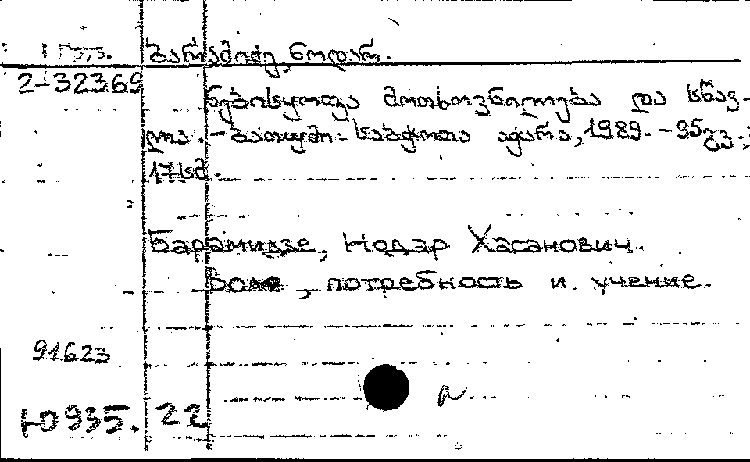 1 Груз. ბარამიძე, ნოდარ.
2-32369
ნებისყოფა მოთხოვნილება და სწავ-
ლა. - ბათუმი: საბჭოთა აჭარა, 1989. - 95გვ.;
17სმ.
Барамидзе, Нодар Хасанович.
Воля, потребность и учение.
91623
Ю935.22